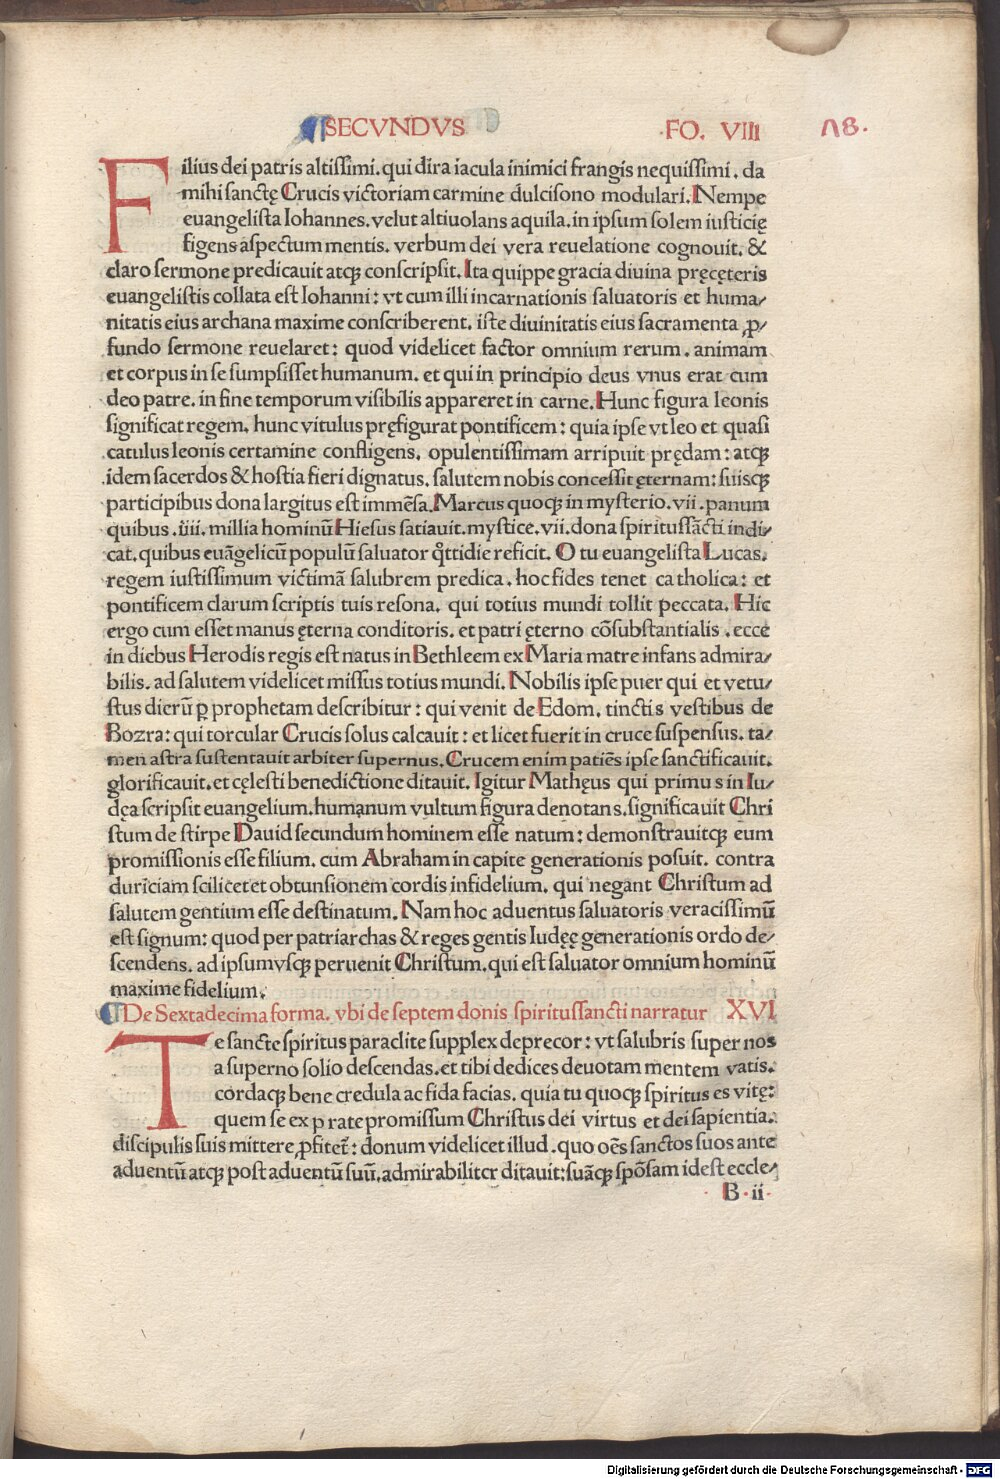 ¶SECVNDVS .FO. VIII Λ8.
Filius dei patris altissimi. qui dira iacula inimici frangis nequissimi. da
mihi sanctę Crucis victoriam carmine dulcisono modulari. Nempe
euangelista Iohannes. velut altiuolans aquila. in ipsum solem iusticię
figens aspectum mentis. verbum dei vera reuelatione cognouit. &
claro sermone predicauit atqꝫ conscripsit. Ita quippe gracia diuina pręcęteris
euangelistis collata est Iohanni: vt cum illi incarnationis saluatoris et huma/
nitatis eius archana maxime conscriberent. iste diuinitatis eius sacramenta ꝓ/
fundo sermone reuelaret: quod videlicet factor omnium rerum. animam
et corpus in se sumpsisset humanum. et qui in principio deus vnus erat cum
deo patre. in fine temporum visibilis appareret in carne. Hunc figura leonis
significat regem. hunc vitulus pręfigurat pontificem: quia ipse vt leo et quasi
catulus leonis certamine confligens. opulentissimam arripuit prędam: atqꝫ
idem sacerdos & hostia fieri dignatus. salutem nobis concessit ęternam: suisqꝫ
participibus dona largitus est immẽsa. Marcus quoqꝫ in mysterio. vii. panum
quibus .iiii. millia hominũ Hiesus satiauit. mystice. vii. dona spiritussãcti indi/
cat. quibus euãgelicũ populũ saluator q̃ttidie reficit. O tu euangelista Lucas.
regem iustissimum victimã salubrem predica. hoc fides tenet ca tholica: et
pontificem clarum scriptis tuis resona. qui totius mundi tollit peccata. Hic
ergo cum esset manus ęterna conditoris. et patri ęterno cõsubstantialis . ecce
in diebus Herodis regis est natus in Bethleem ex Maria matre infans admira/
bilis. ad salutem videlicet missus totius mundi. Nobilis ipse puer qui et vetu/
stus dierũ ꝑ prophetam describitur: qui venit de Edom. tinctis vestibus de
Bozra: qui torcular Crucis solus calcauit: et licet fuerit in cruce suspensus. ta/
men astra sustentauit arbiter supernus. Crucem enim patiẽs ipse sanctificauit.
glorificauit. et cęlesti benedictione ditauit. Igitur Mathęus qui primus in Iu/
dęa scripsit euangelium. humanum vultum figura denotans. significauit Chri
stum de stirpe Dauid secundum hominem esse natum: demonstrauitqꝫ eum
promissionis esse filium. cum Abraham in capite generationis posuit. contra
duriciam scilicet et obtunsionem cordis infidelium. qui negant Christum ad
salutem gentium esse destinatum. Nam hoc aduentus saluatoris veracissimũ
est signum: quod per patriarchas & reges gentis Iudęę generationis ordo de/
scendens. ad ipsumvsqꝫ peruenit Christum. qui est saluator omnium hominũ
maxime fidelium.
¶De Sextadecima forma. vbi de septem donis spiritussancti narratur XVI
Te sancte spiritus paraclite supplex deprecor: vt salubris super nos
a superno solio descendas. et tibi dedices deuotam mentem vatis.
cordaqꝫ bene credula ac fida facias. quia tu quoqꝫ spiritus es vitę:
quem se ex p rate promissum Christus dei virtus et dei sapientia.
discipulis suis mittere ꝓfitet᷑: donum videlicet illud. quo oẽs sanctos suos ante
aduentũ atqꝫ post aduentũ suũ. admirabiliter ditauit: suãqꝫ spõsam id est eccle/
B.ii.
Digitalisierung gefördert durch die Deutsche Forschungsgemeinschaft - DFG